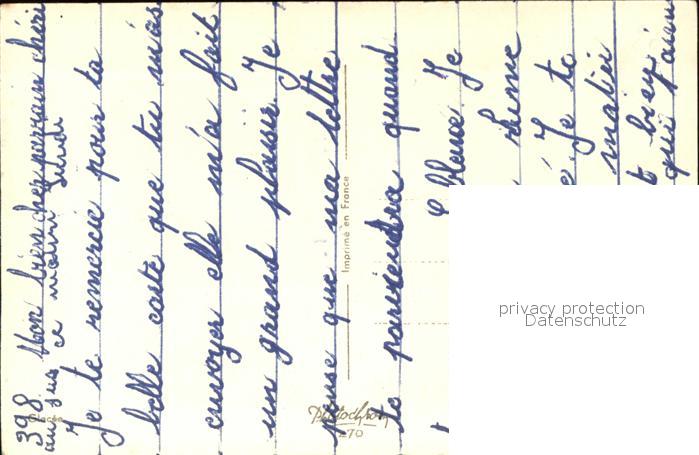 398
Mon bien cher parrain chéri
ce matin Lundi
Je te remercie pour ta
belle carte que tu m'as
envoyer elle m'a fait
un grand plaisir. Je
pense que ma lettre
te parviendra quand
blanc. Je
rhume
é. Je te
t
qui
Imprimé en France
Photochrom
270
privacy protection
Datenschutz